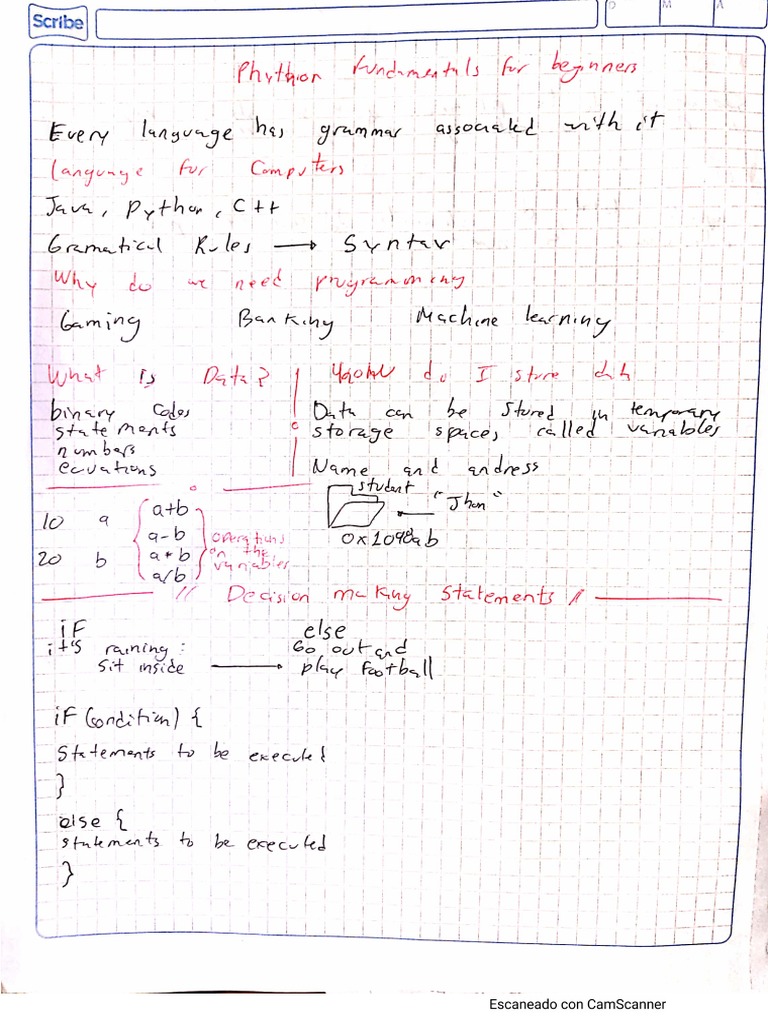 Scribe
D M A
Phythion fundamentals for beginners
Every language has grammar associated with it
Language for Computers
Java, Python, C++
Gramatical Rules → Syntax
Why do we need programming
Gaming Banking Machine learning
What is Data?
binary codes
statements
numbers
ecuations
do I store
Data can be stored in temporary
storage space, called variables
Name and andress
student
"Jhon"
0x1098ab
10 a
20 b
a+b
a-b
a*b
a/b
operations
on the
variables
// Decision making Statements //
if
it's raining:
sit inside →
else
Go out and
play Football
if (condition) {
Statements to be executed
}
else {
statements to be executed
}
Escaneado con CamScanner